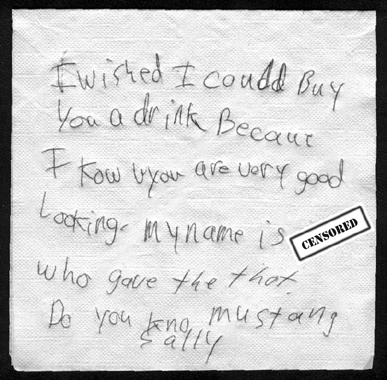 I wished I could Buy
You a drink Becaue
I Kow vyou are very good
Looking. my name is CENSORED
who gave the that
Do you kno mustang
Sally